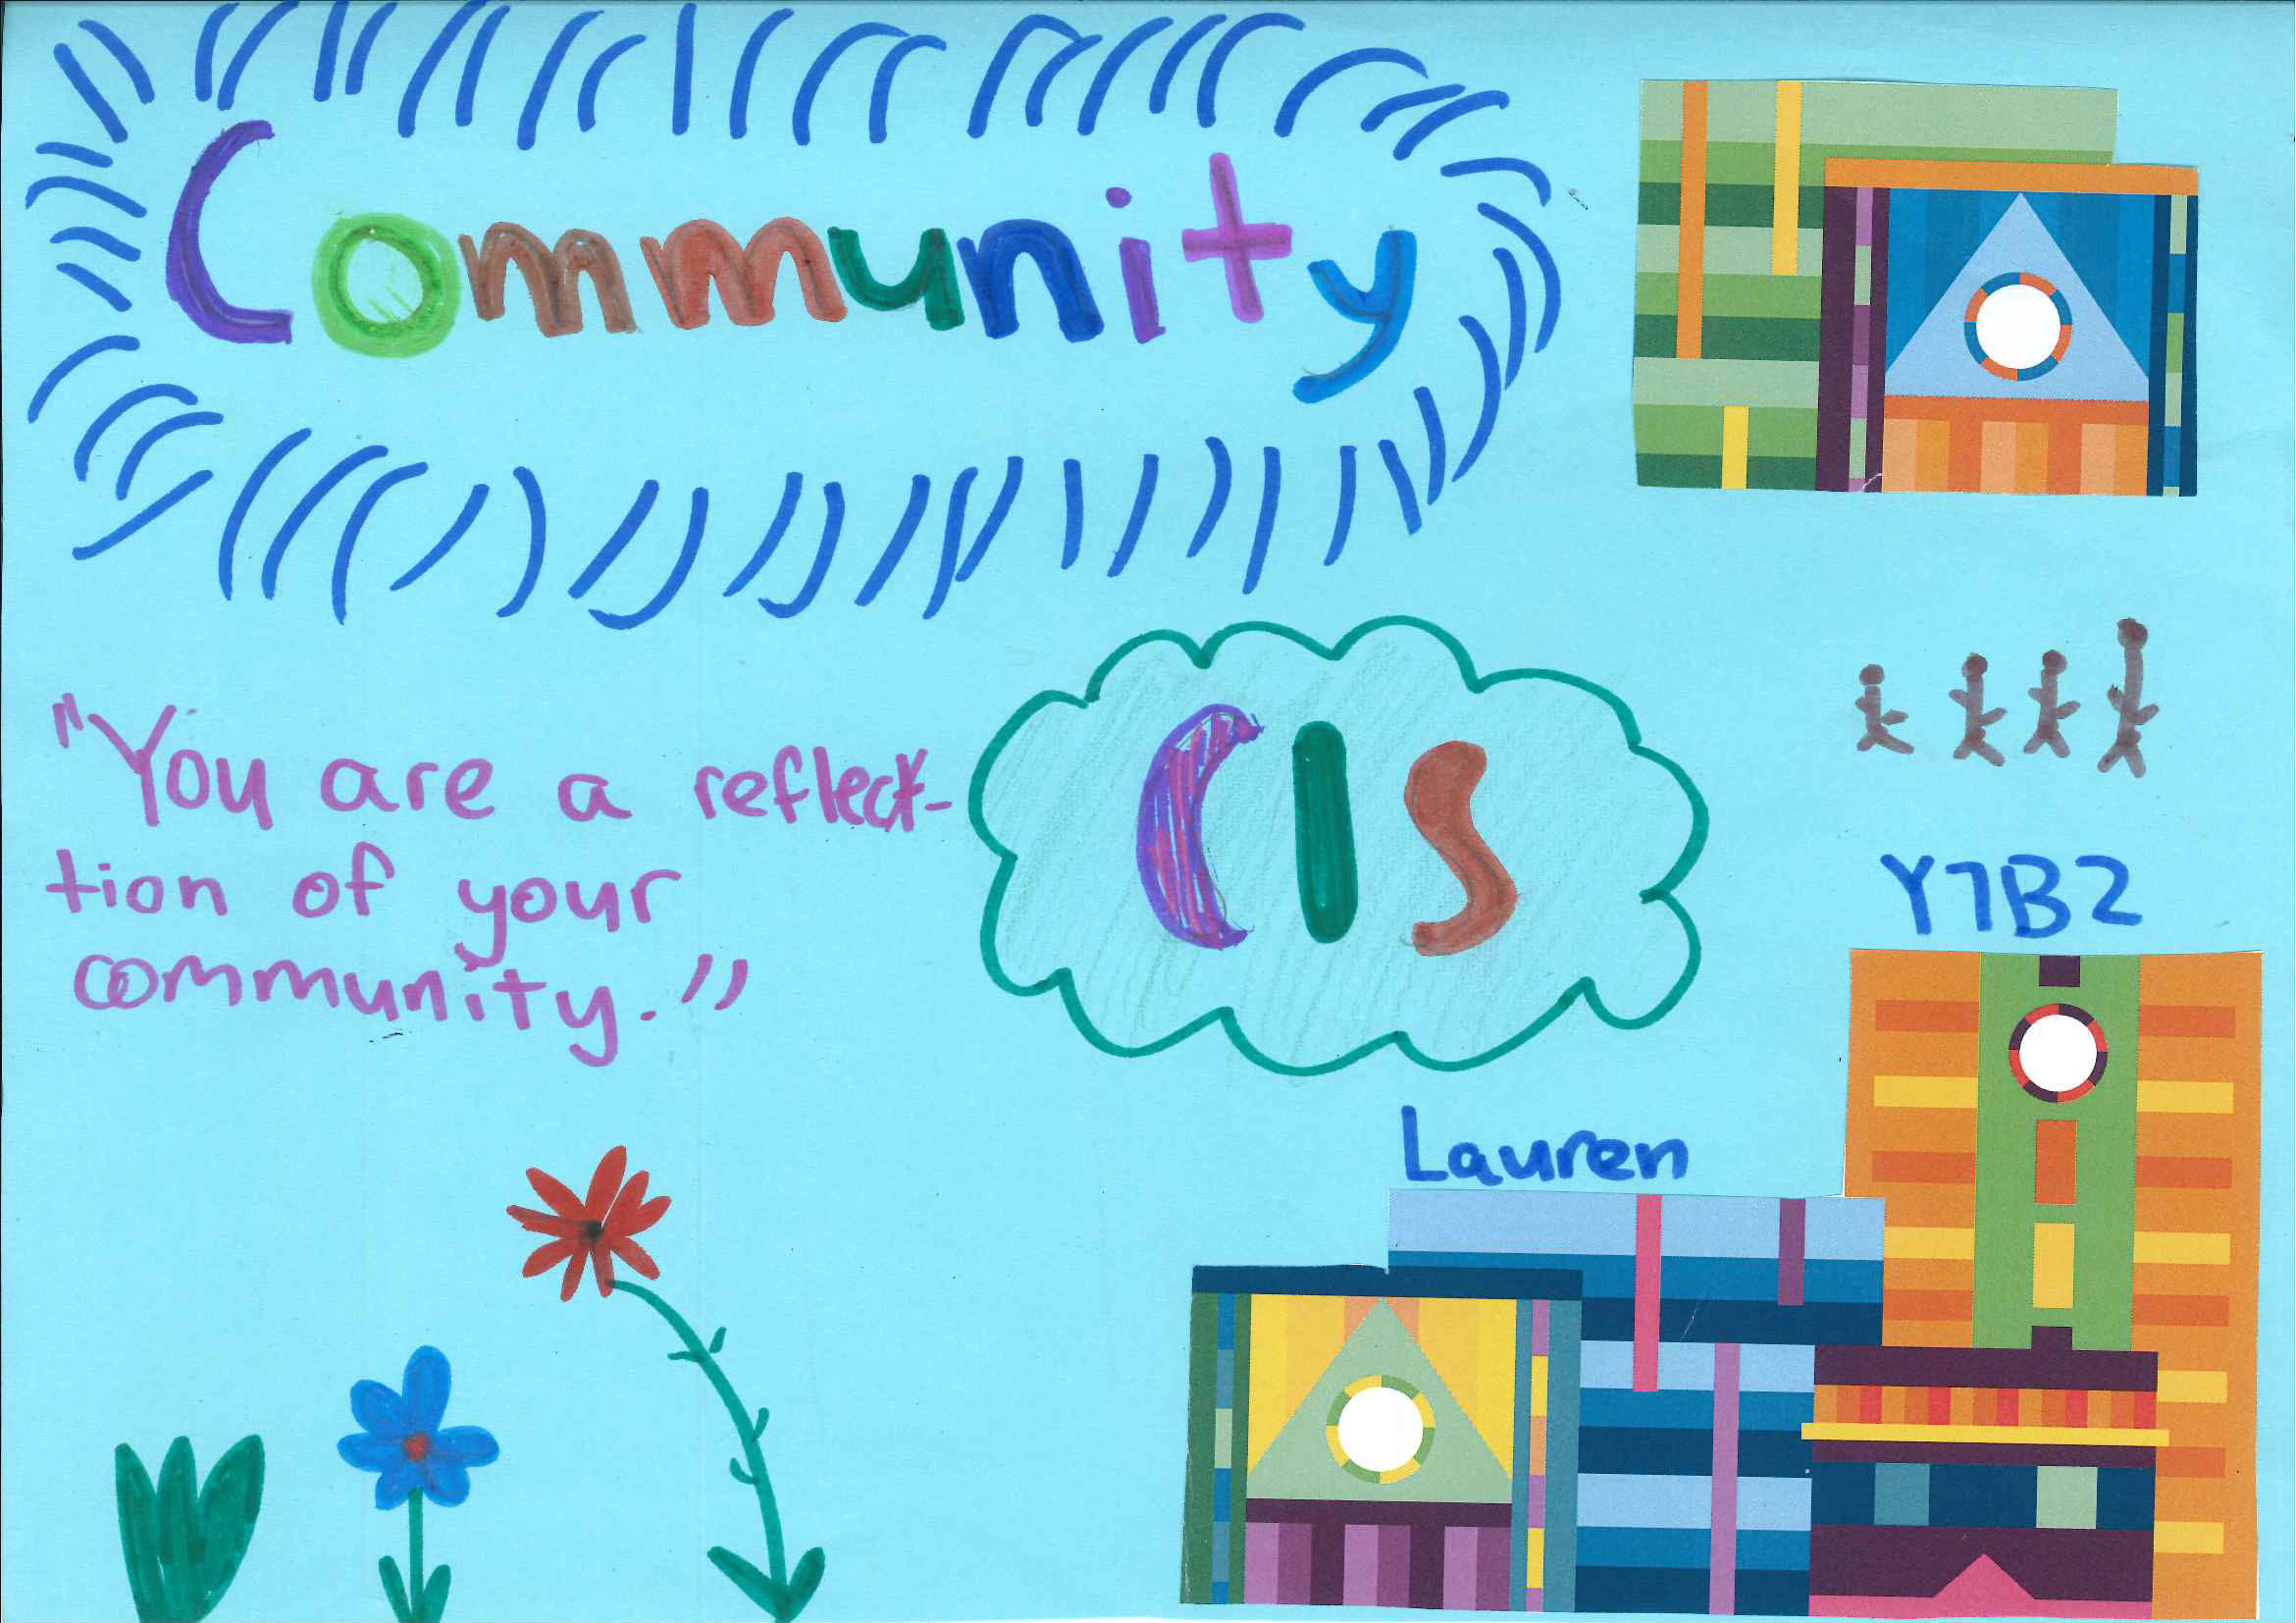 Community
"You are a reflect-
tion of your
community."
CIS
Y7B2
Lauren